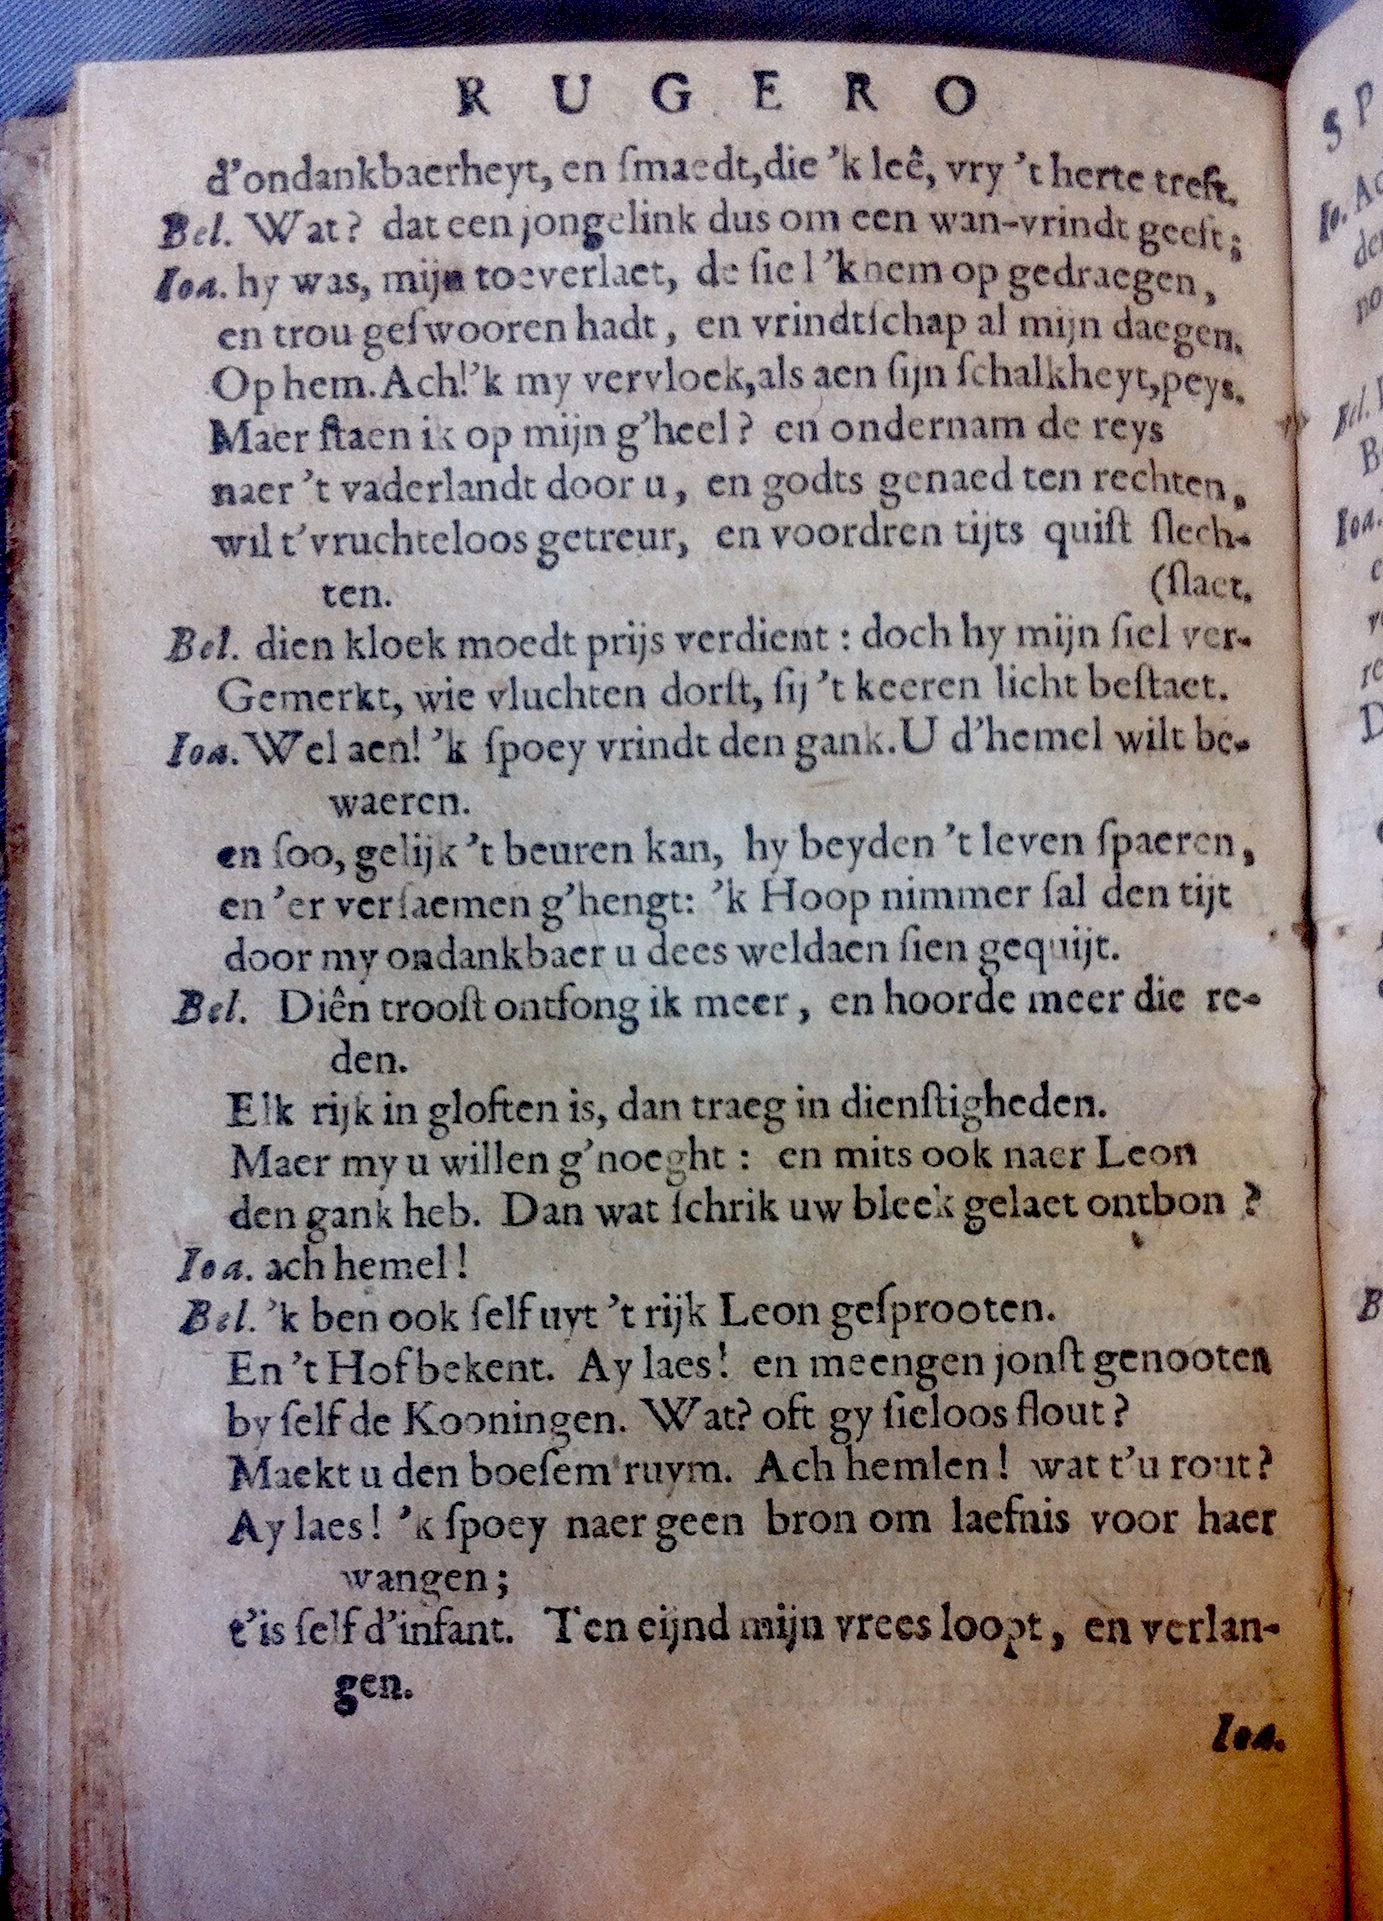 RUGERO
d'ondankbaerheyt, en ſmaedt, die 'k leê, vry 't herte treft.
Bel. Wat? dat een jongelink dus om een wan-vrindt geeft;
Ioa. hy was, mijn toeverlaet, de ſiel 'k hem op gedraegen,
en trou geſwooren hadt, en vrindtſchap al mijn daegen.
Op hem. Ach! 'k my vervloek, als aen ſijn ſchalkheyt, peys.
Maer ſtaen ik op mijn g'heel? en ondernam de reys
naer 't vaderlandt door u, en godts genaed ten rechten,
wil t'vruchteloos getreur, en voordren tijts quiſt ſlech-
ten. (ſlaet.
Bel. dien kloek moedt prijs verdient: doch hy mijn ſiel ver-
Gemerkt, wie vluchten dorſt, ſij 't keeren licht beſtaet.
Ioa. Wel aen! 'k ſpoey vrindt den gank. U d'hemel wilt be-
waeren.
en ſoo, gelijk 't beuren kan, hy beyden 't leven ſpaeren,
en 'er verſaemen g'hengt: 'k Hoop nimmer ſal den tijt
door my ondankbaer u dees weldaen ſien gequijt.
Bel. Diên trooſt ontfong ik meer, en hoorde meer die re-
den.
Elk rijk in gloften is, dan traeg in dienſtigheden.
Maer my u willen g'noeght: en mits ook naer Leon
den gank heb. Dan wat ſchrik uw bleek gelaet ontbon?
Ioa. ach hemel!
Bel. 'k ben ook ſelf uyt 't rijk Leon geſprooten.
En 't Hof bekent. Ay laes! en meengen jonſt genooten
by ſelf de Kooningen. Wat? oft gy ſieloos flout?
Maekt u den boeſem ruym. Ach hemlen! wat t'u rout?
Ay laes! 'k ſpoey naer geen bron om laefnis voor haer
wangen;
t'is ſelf d'infant. Ten eijnd mijn vrees loopt, en verlan-
gen.
Ioa.
S P
Io. Ac
Bel.
Ioa.